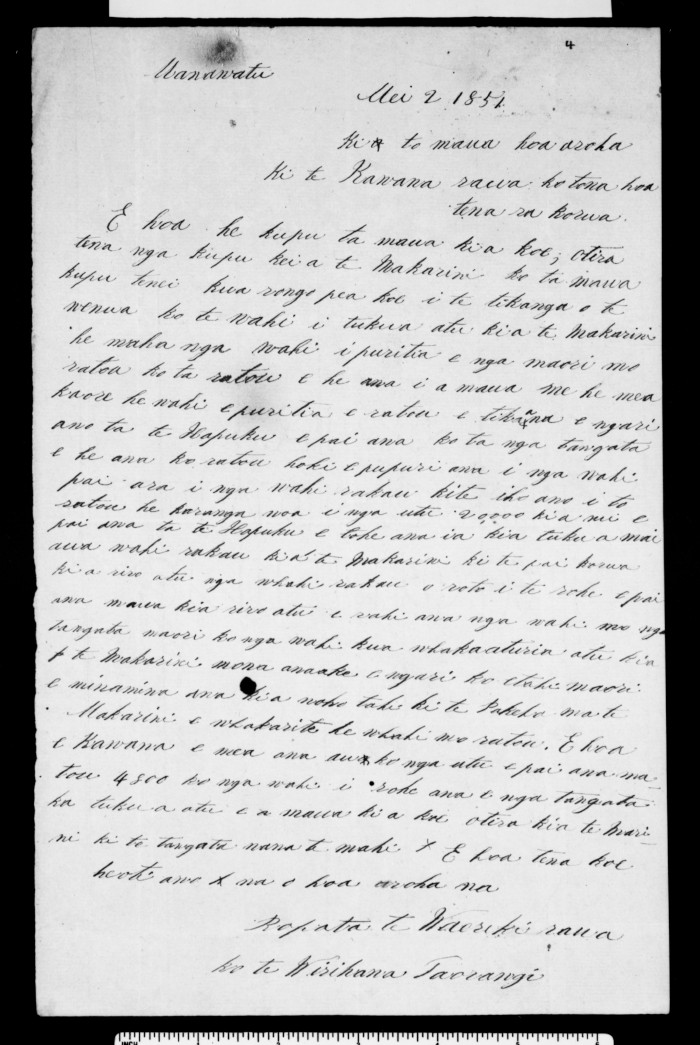 4
Manawatu
Mei 2 1851
Ki to maua hoa aroha
Ki te Kawana raua ko tona hoa
tena ra korua.
E hoa he kupu ta maua ki a koe; otira
tena nga kupu kei a te Makarini ko ta maua
kupu tenei kua rongo pea koe i te tikanga o te
wenua ko te wahi i tukua atu ki a te Makarini
he maha nga wahi i puritia e nga maori mo
ratou ko ta ratou e he ana i a maua me he mea
kaore he wahi e puritia e ratou e tikana e ngari
ano ta te Hapuku e pai ana ko ta nga tangata
e he ana ko ratou hoki e pupuri ana i nga wahi
pai ara i nga wahi rakau kite iho ano i to
ratou he karanga noa i nga utu 20,000 kia nui e
pai ana ta te Hapuku e tohe ana ia kia tuku a mai
aua wahi rakau kia te Makarini ki te pai korua
ki a riro atu nga whahi rakau o roto i te rohe e pai
ana maua kia riro atu e vahi ana nga wahi mo nga
tangata maori ko nga wahi kua whakaaturia atu kia
te Makarini mona anaake e ngari ko etahi maori
e minamina ana kia noho tahi ki te Pakeha ma te
Makarini e whakarite he whahi mo ratou. E hoa
e Kawana e mea ana au ko nga utu e pai ana ma-
tou 4800 ko nga wahi i rohe ana e nga tangata
ka tuku a atu e a maua ki a koe otira kia te Mari-
ni ki to tangata nana te mahi. x E hoa tena koe
heoti ano x na o hoa aroha na
Ropata te Waeriki raua
ko te Wirihana Taorangi
INCH 1 2 3 4 5